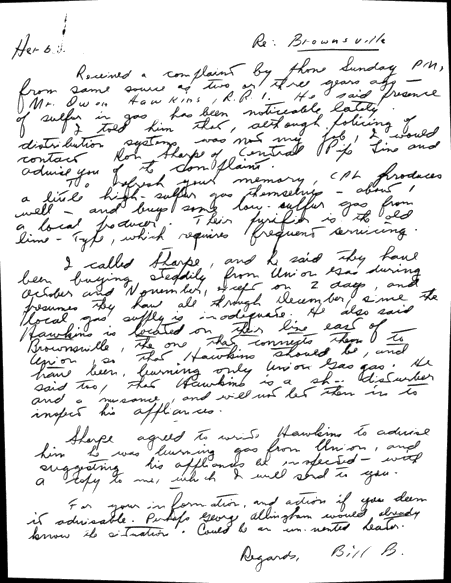 Herb:
Re: Brownsville
Received a complaint by phone Sunday P.M.,
from same source as two or three years ago —
Mr. Owen Hawkins, R.R. 1. He said presence
of sulfur in gas has been noticeable lately.
I told him that, although policing of
distribution system was not my job, I would
contact Ron Sharpe of Central Pipe Line and
advise you of the complaint.
To refresh your memory, CPL produces
a little high-sulfur gas themselves — about 1
well — and buys some low-sulfur gas from
a local producer. Their purifier is the old
lime-type, which requires frequent servicing.
I called Sharpe, and he said they have
been buying steadily from Union Gas during
October and November, except on 2 days, and
presumes they have all through December, since the
local gas supply is inadequate. He also said
Hawkins is located on their line east of
Brownsville — the one that connects them to
Union, so that Hawkins should be, and
have been, burning only Union Gas gas. He
said too, that Hawkins is a sh-- disturber
and a nuisance, and will not let them in to
inspect his appliances.
Sharpe agreed to write Hawkins to advise
him he was burning gas from Union, and
suggesting his appliances be inspected — with
a copy to me, which I will send to you.
For your information, and action if you deem
it advisable. Perhaps George Allingham would already
know the situation. Could be an un-vented heater.
Regards, Bill B.